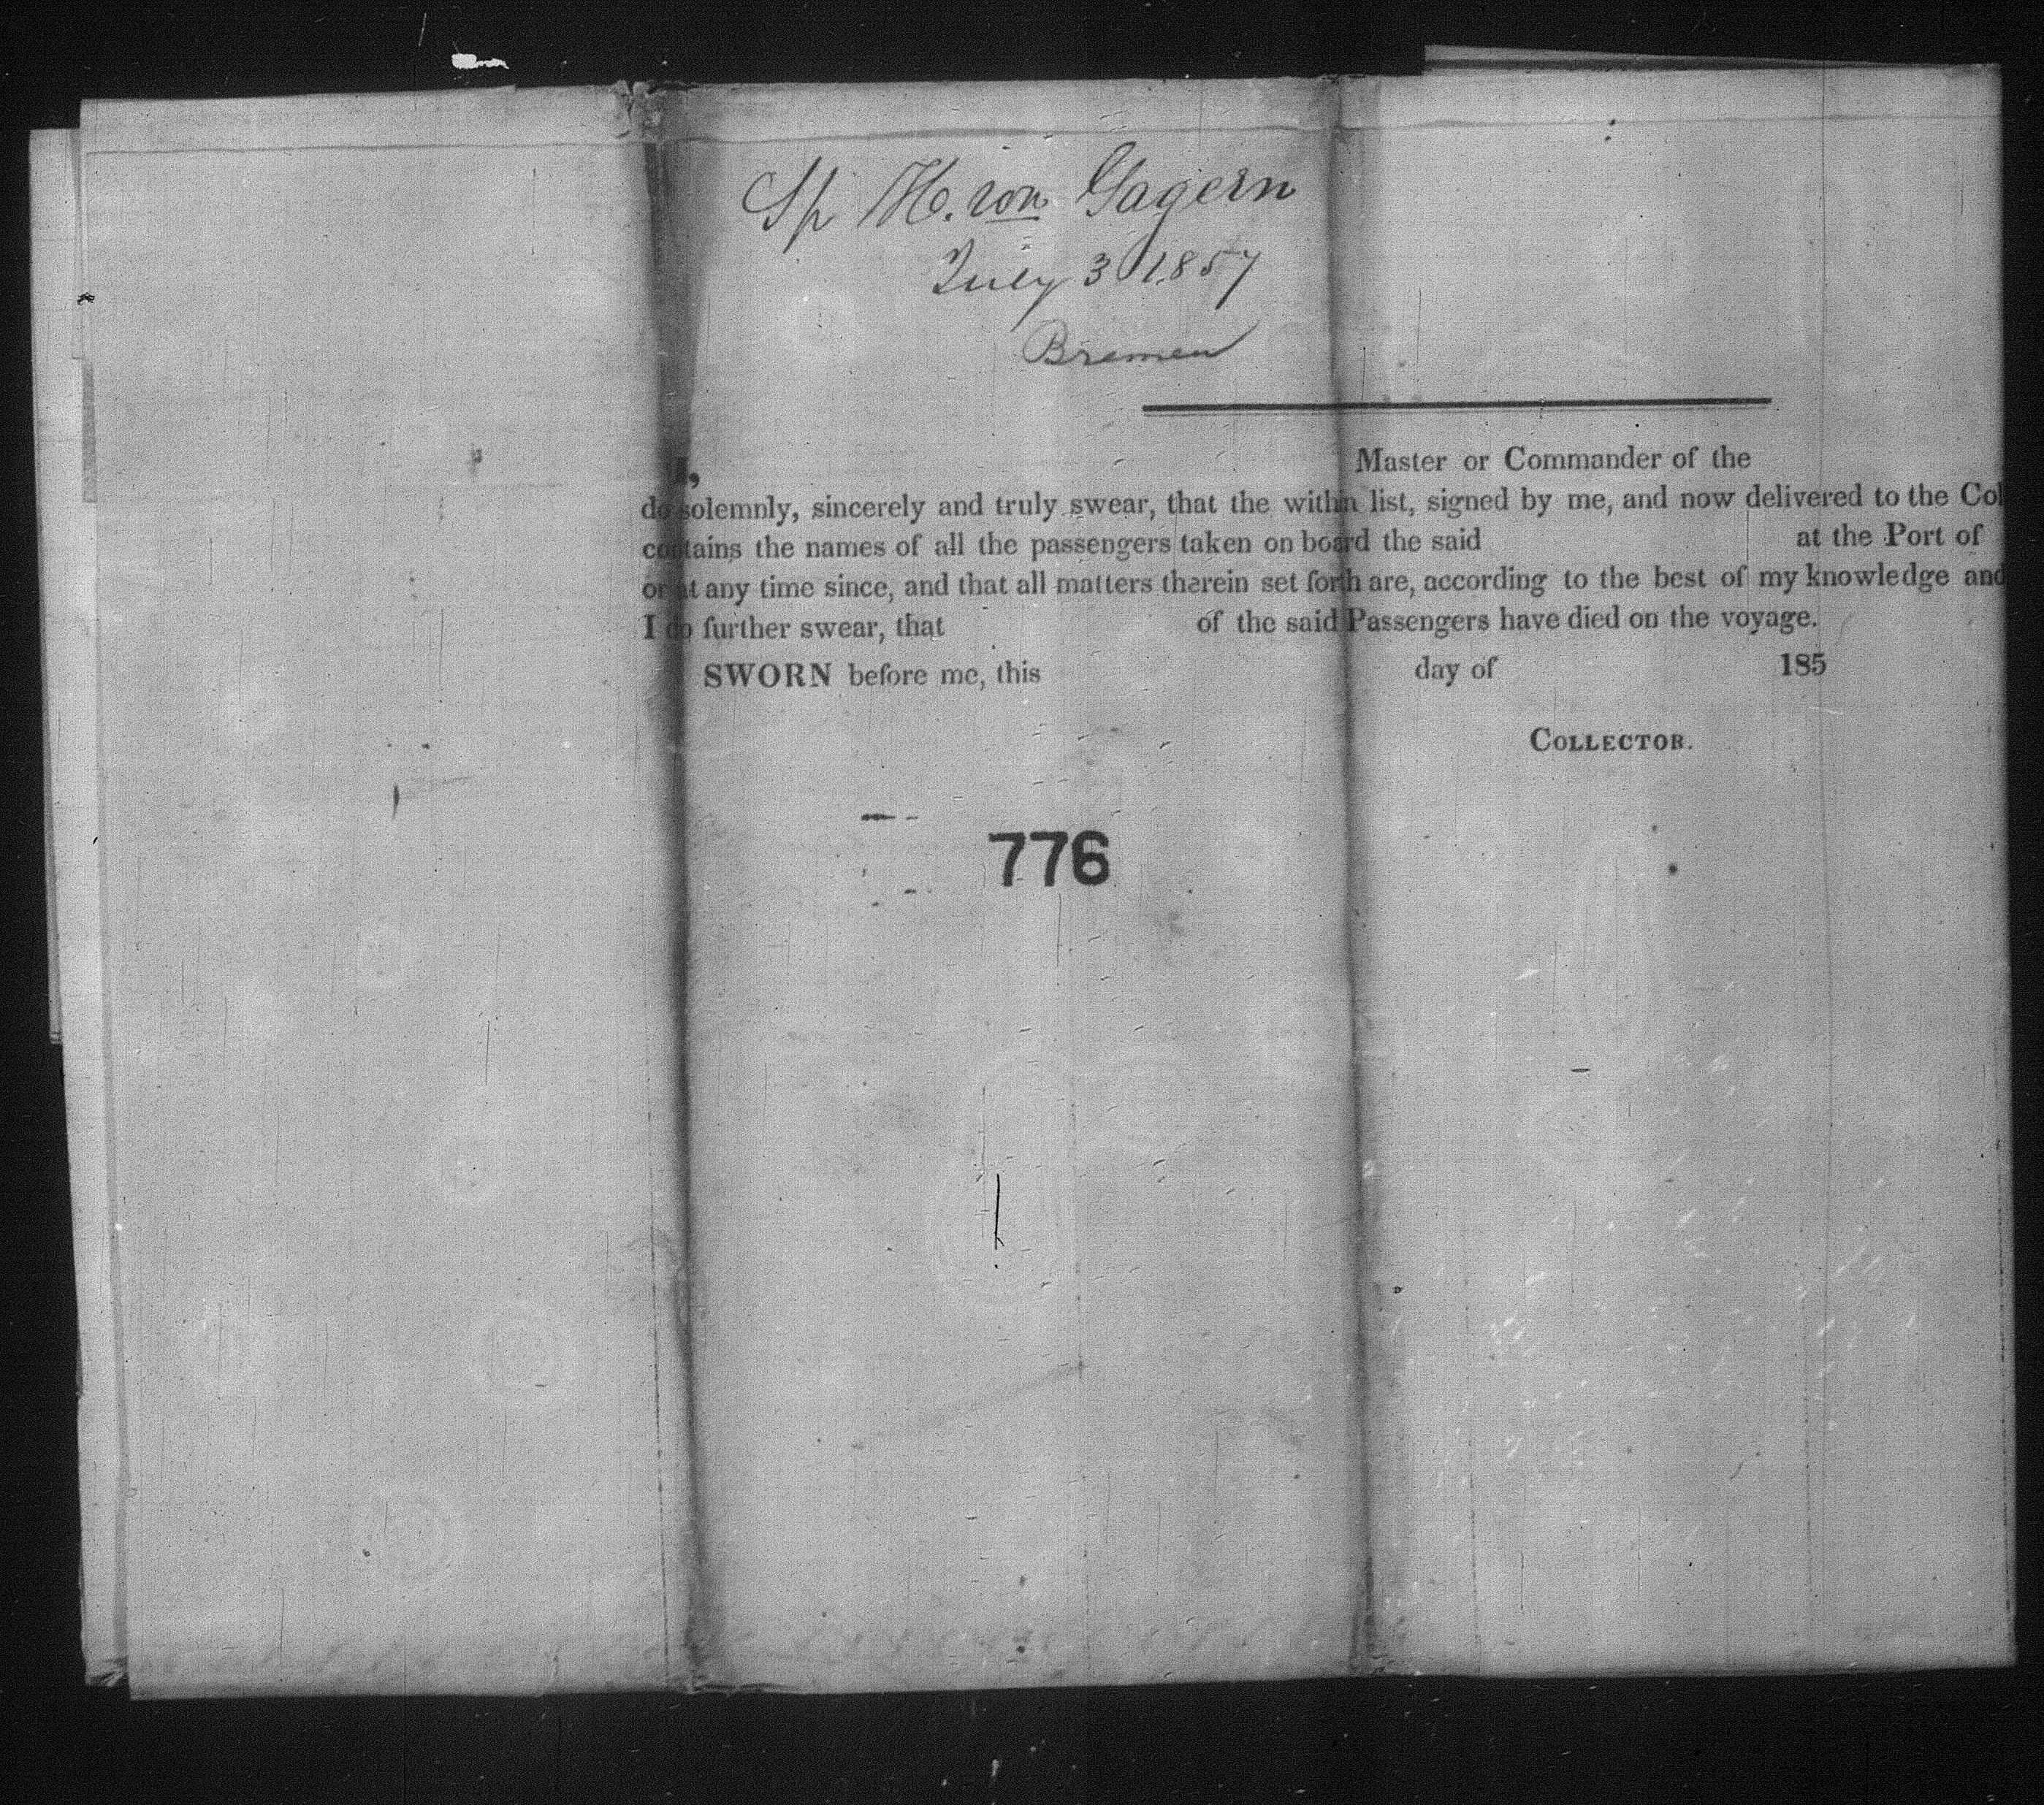 Sp H. von Gagern
July 3 1857
Bremen
I, Master or Commander of the
do solemnly, sincerely and truly swear, that the within list, signed by me, and now delivered to the Col
contains the names of all the passengers taken on board the said at the Port of
or at any time since, and that all matters therein set forth are, according to the best of my knowledge and
I do further swear, that of the said Passengers have died on the voyage.
SWORN before me, this day of 185
COLLECTOR.
776